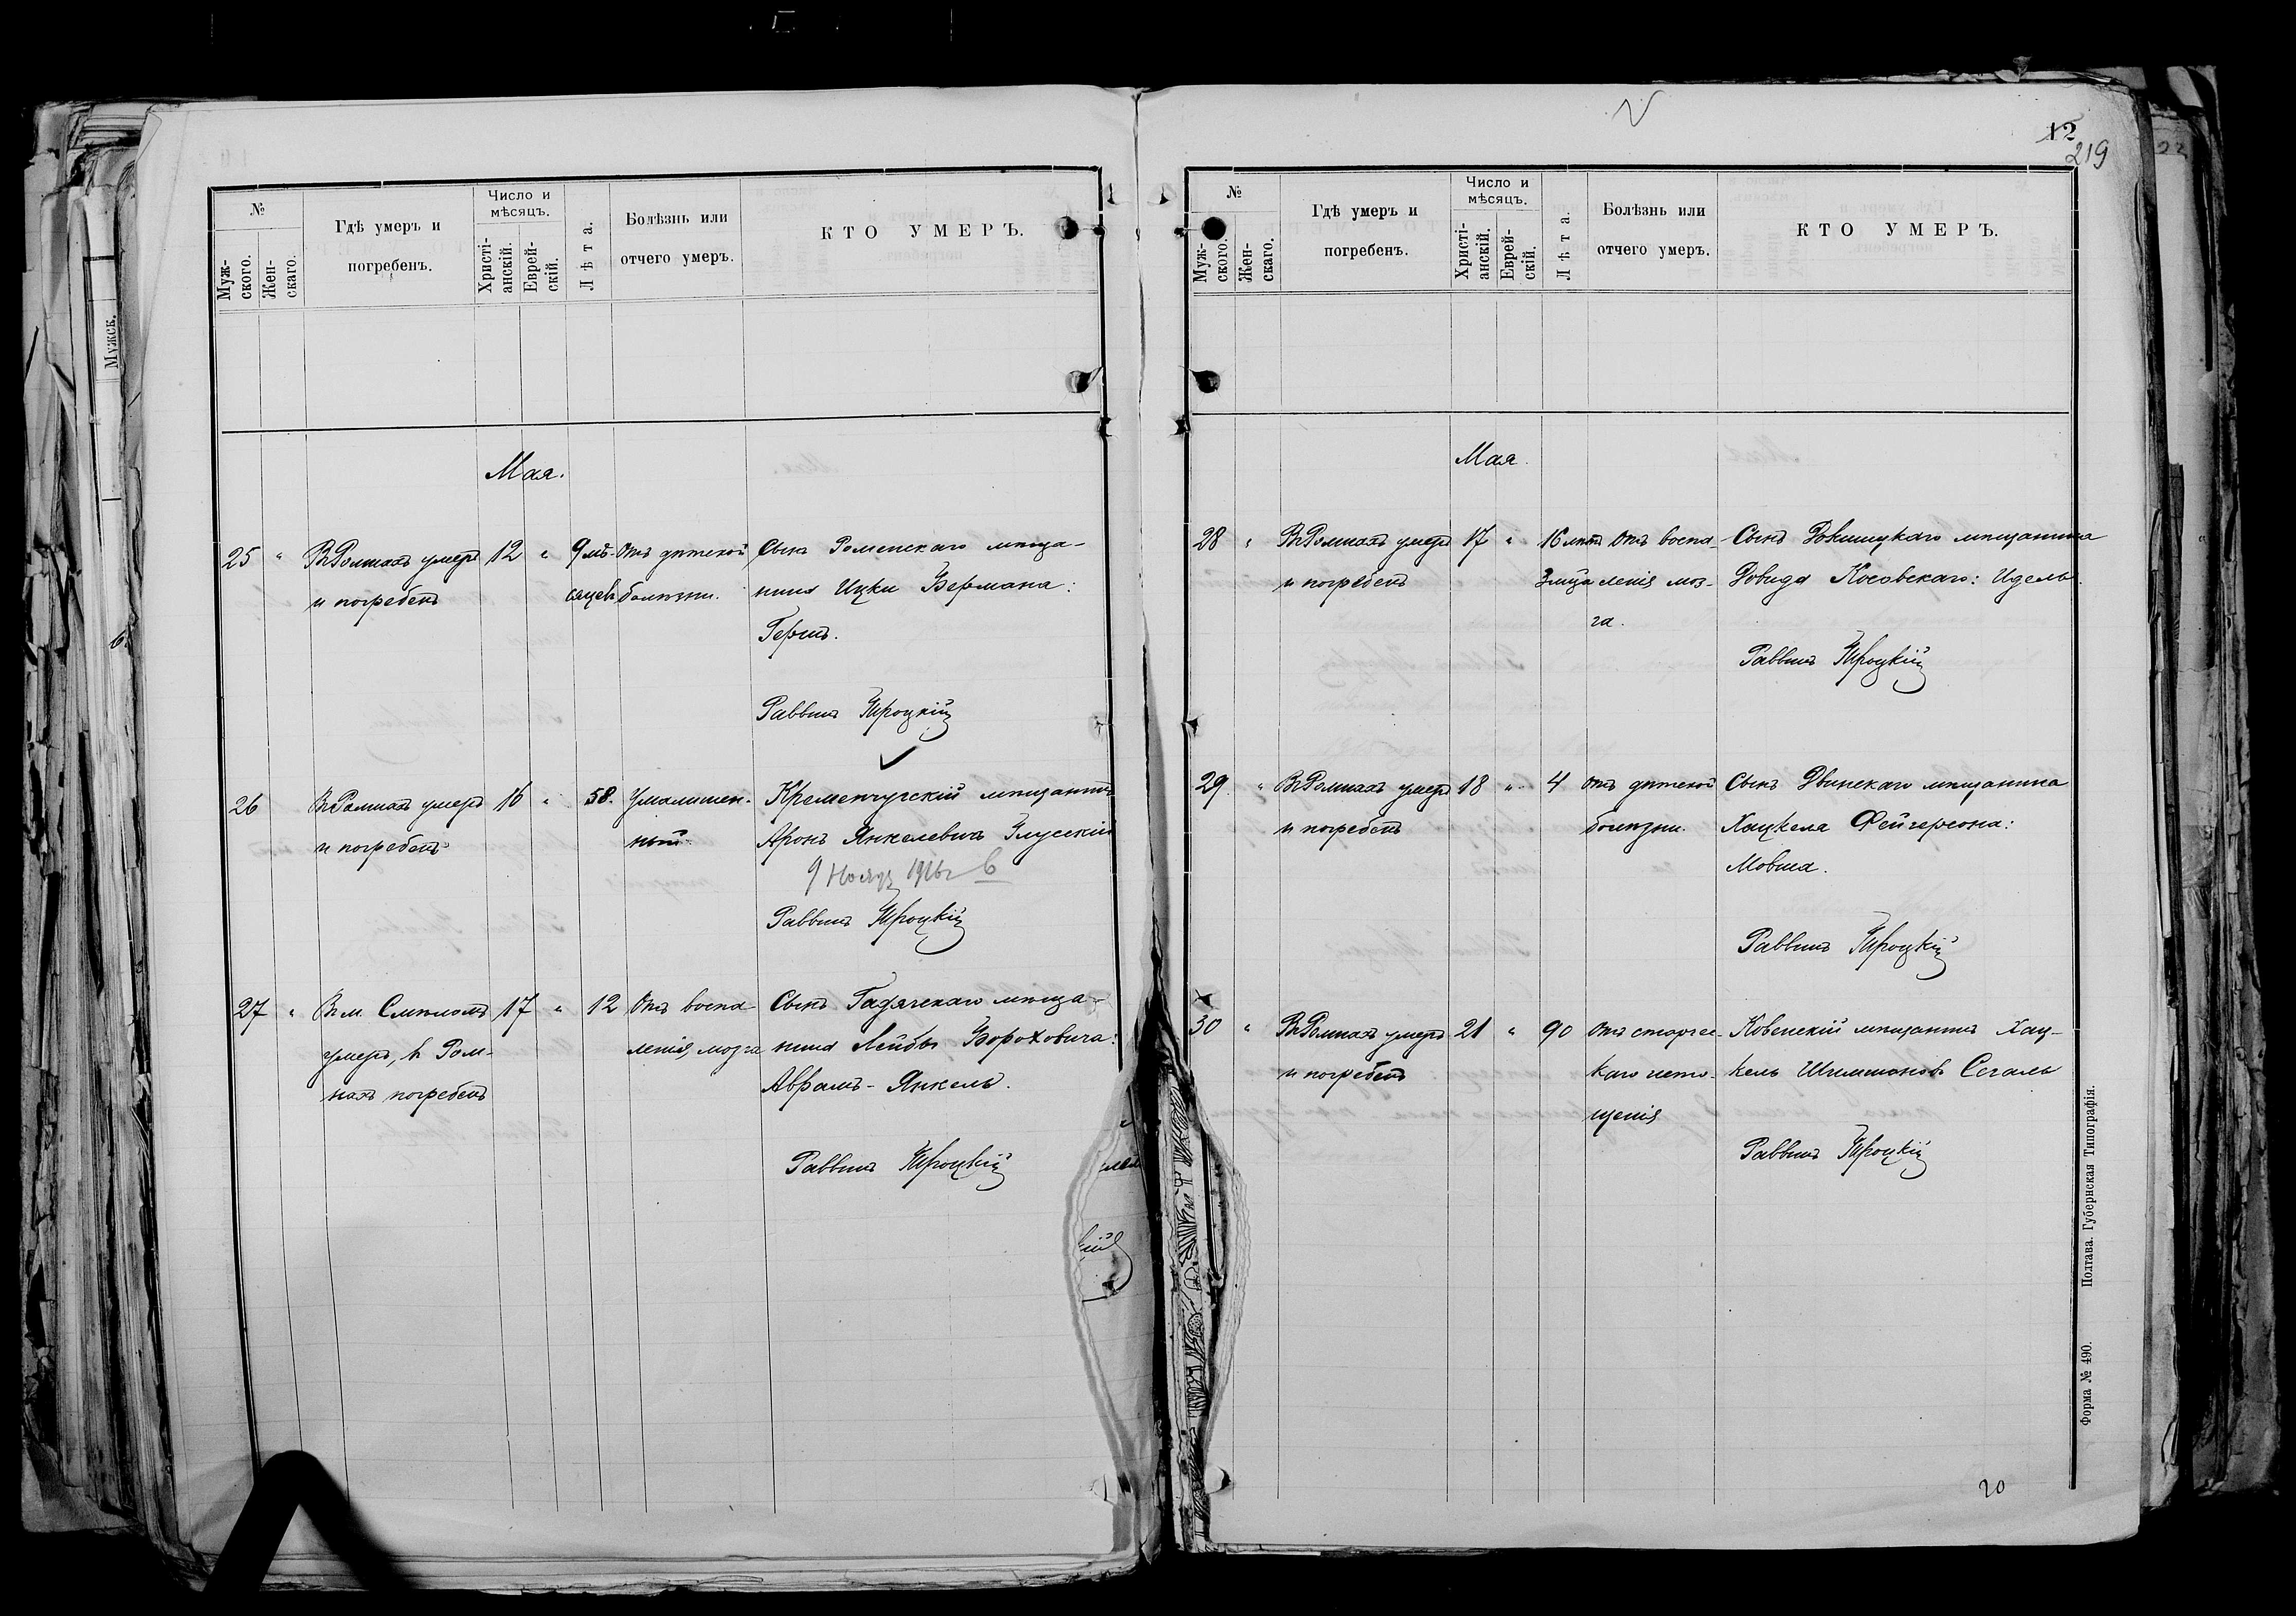 №
Муж-
ского.
Жен-
скаго.
Гдѣ умеръ и
погребенъ.
Число и
мѣсяцъ.
Христі-
анскій.
Еврей-
скій.
Лѣта.
Болѣзнь или
отчего умеръ.
КТО УМЕРЪ.
Мая.
25 " Въ Ромнахъ умеръ 12 " 9 мѣ- Отъ дѣтской Сынъ Роменскаго мѣща-
и погребенъ сяцевъ болѣзни. нина Ицки Бермана:
Гершъ.
Раввинъ Троцкій
26 Въ Ромнахъ умеръ 16 " 58. Умалишен- Кременчугскій мѣщанинъ
и погребенъ ный Аронъ Янкелевичъ Глускій
9 Нояб 1916 г
Раввинъ Троцкій
27 " Въ м. Смѣломъ 17 " 12 Отъ воспа- Сынъ Гадячскаго мѣща-
умеръ, въ Ром- ленія мозга нина Лейбы Бороховича:
нахъ погребенъ Аврамъ-Янкель.
Раввинъ Троцкій
12
219
№
Муж-
ского.
Жен-
скаго.
Гдѣ умеръ и
погребенъ.
Число и
мѣсяцъ.
Христі-
анскій.
Еврей-
скій.
Лѣта.
Болѣзнь или
отчего умеръ.
КТО УМЕРЪ.
Мая.
28 " Въ Ромнахъ умеръ 17 " 16 лѣтъ Отъ воспа- Сынъ Докшицкаго мѣщанина
и погребенъ 3 мѣца ленія моз- Довида Косовскаго: Идель.
га.
Раввинъ Троцкій
29. " Въ Ромнахъ умеръ 18 " 4 Отъ дѣтской Сынъ Двинскаго мѣщанина
и погребенъ болѣзни. Хацкела Фейгерсона:
Мовша.
Раввинъ Троцкій
30 " Въ Ромнахъ умеръ 21 " 90 Отъ старчес- Ковенскій мѣщанинъ Хац-
и погребенъ каго исто- кель Шимшоновъ Сегаль
щенія
Раввинъ Троцкій
20
Форма № 490. Полтава. Губернская Типографія.
Мужск.